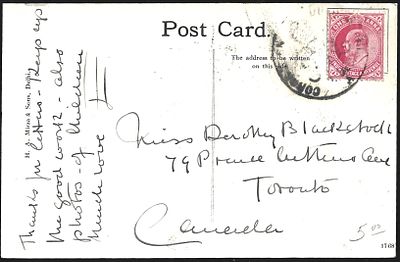 Post Card.
The address to be written
on this side.
ONE ANNA
H. A. Mirza & Sons, Delhi.
Thanks for letters - Keep up
the good work - also
photos - of Children
Much love
Miss Dorothy Blackstock
79 Prince Arthurs Ave
Toronto
Canada
5.00
1768